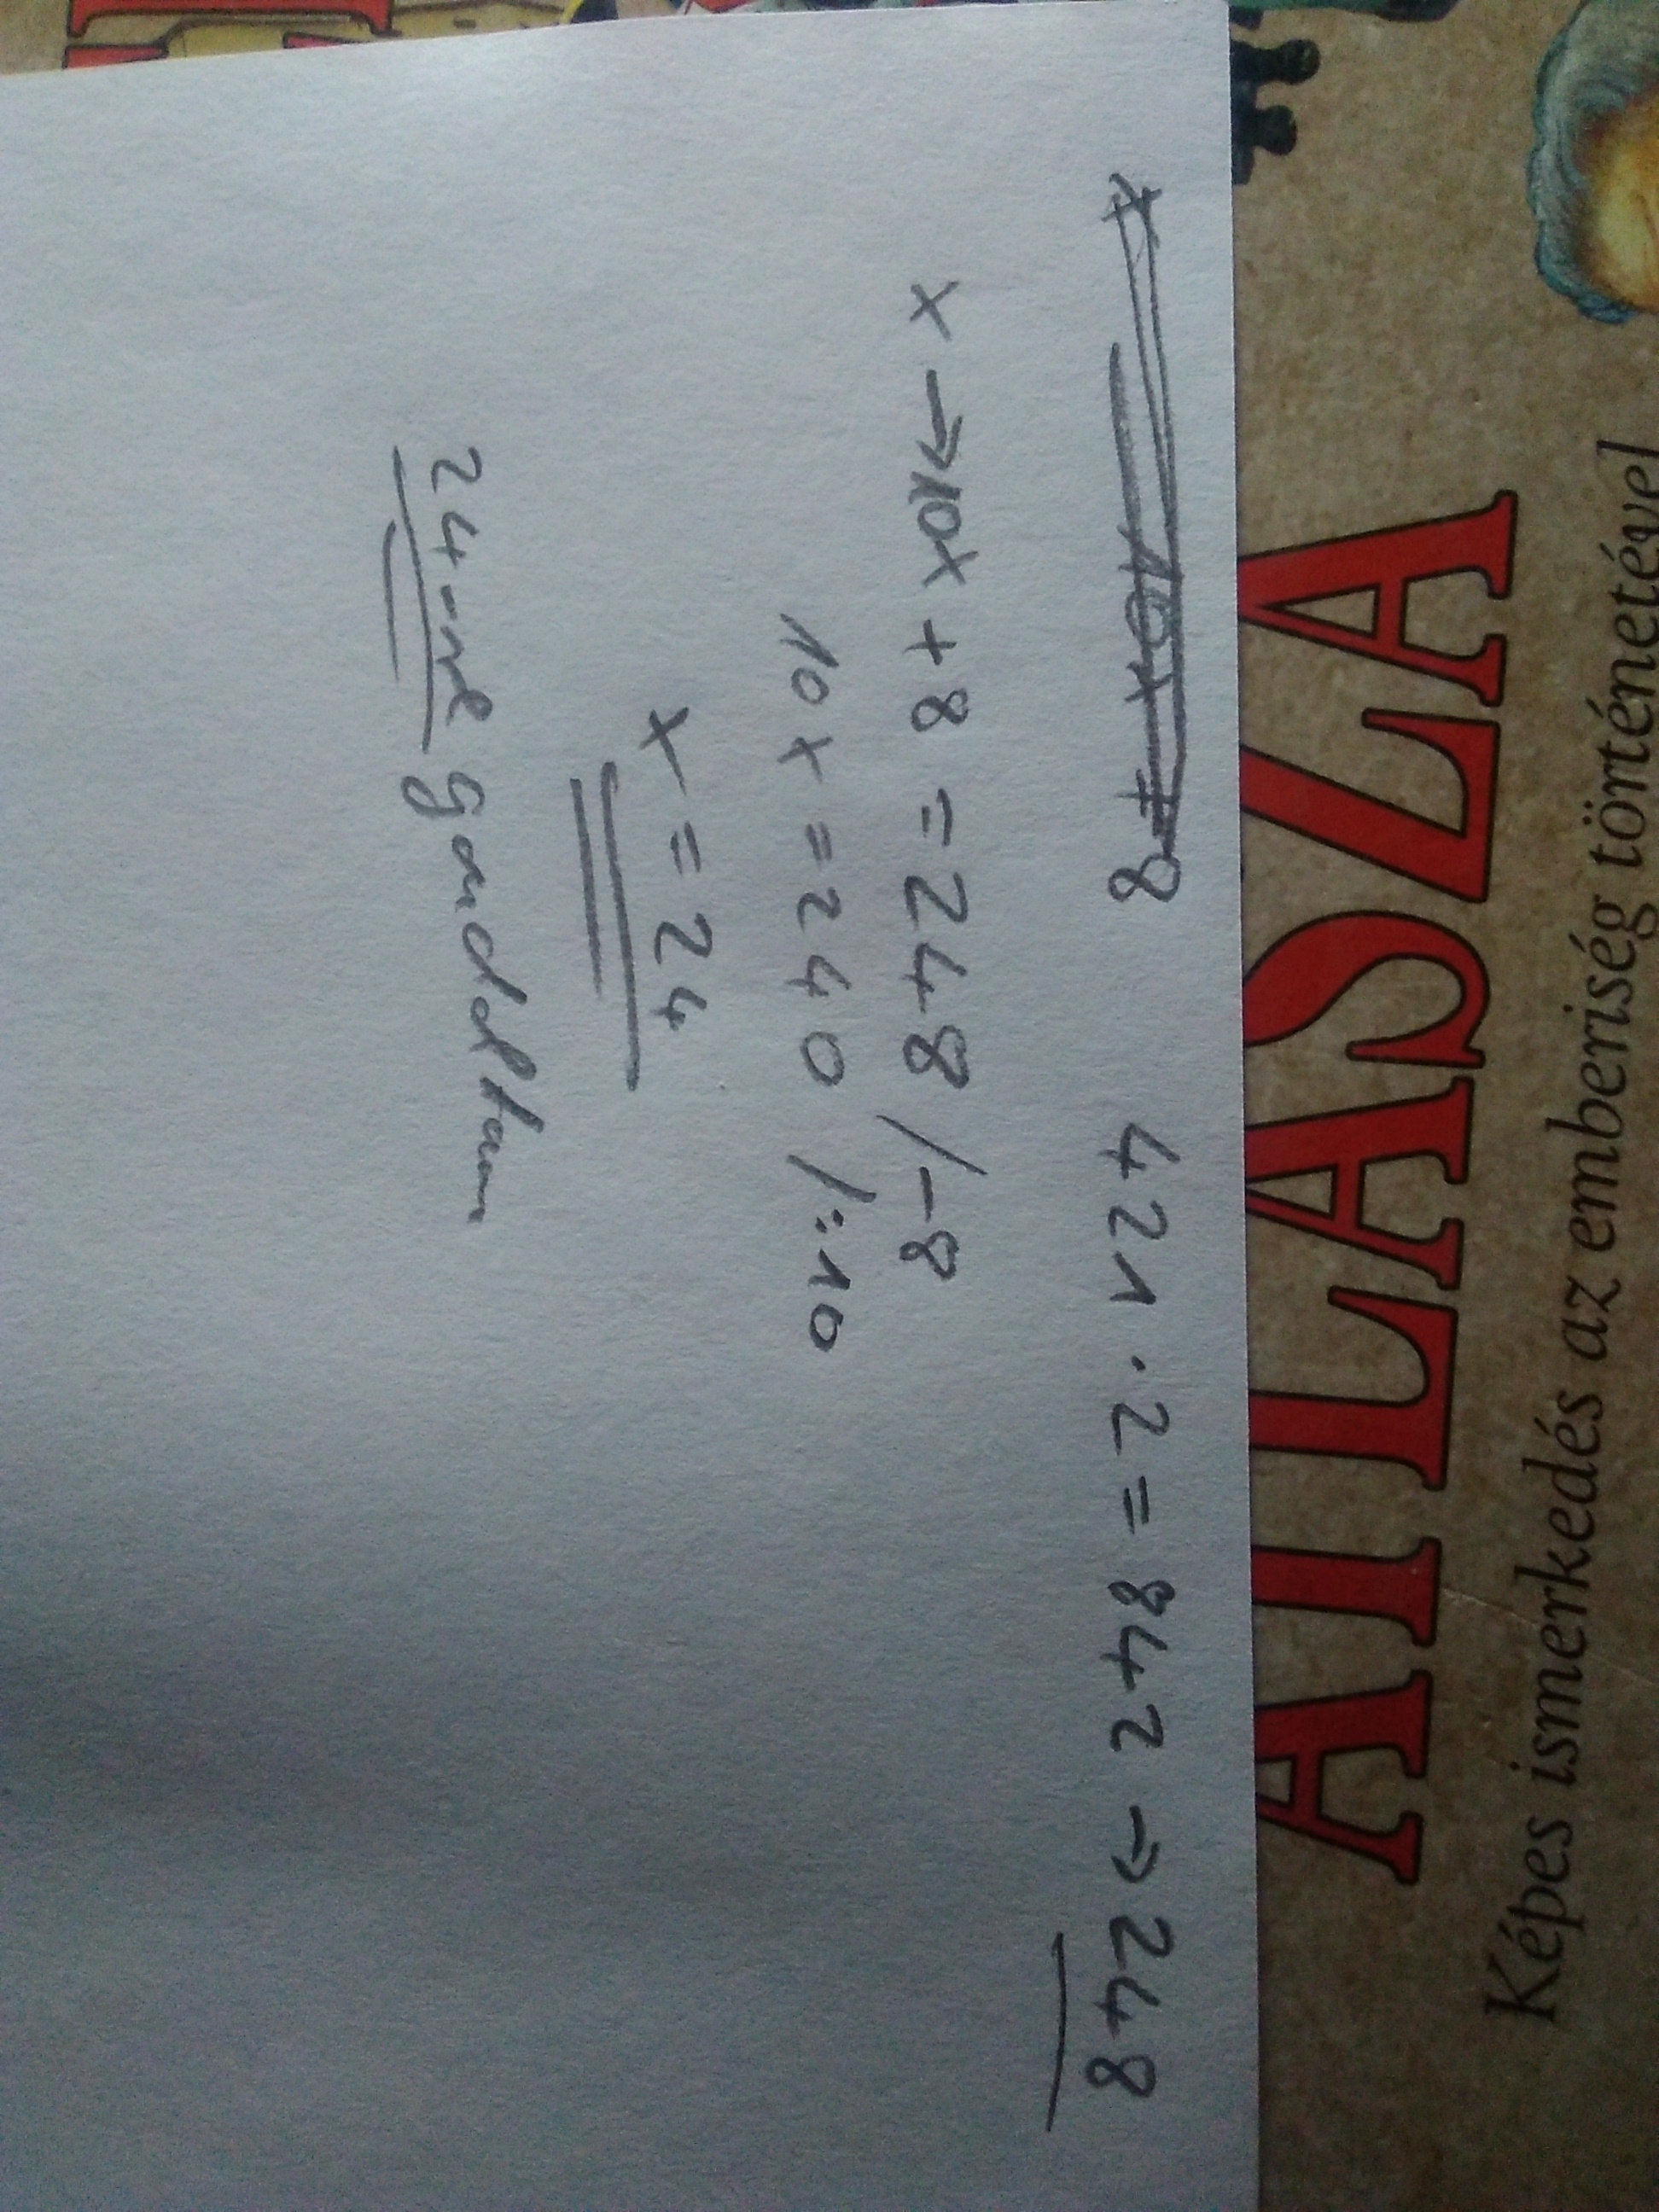 ATLASZA
Képes ismerkedés az emberiség történetével
x 10x = 8 421 · 2 = 842 → 248
x → 10x + 8 = 248 /-8
10x = 240 /:10
x = 24
24-re gondoltam